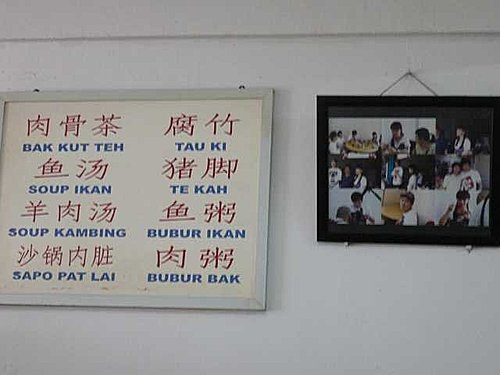 肉骨茶 腐竹
BAK KUT TEH TAU KI
鱼汤 猪脚
SOUP IKAN TE KAH
羊肉汤 鱼粥
SOUP KAMBING BUBUR IKAN
沙锅内脏 肉粥
SAPO PAT LAI BUBUR BAK